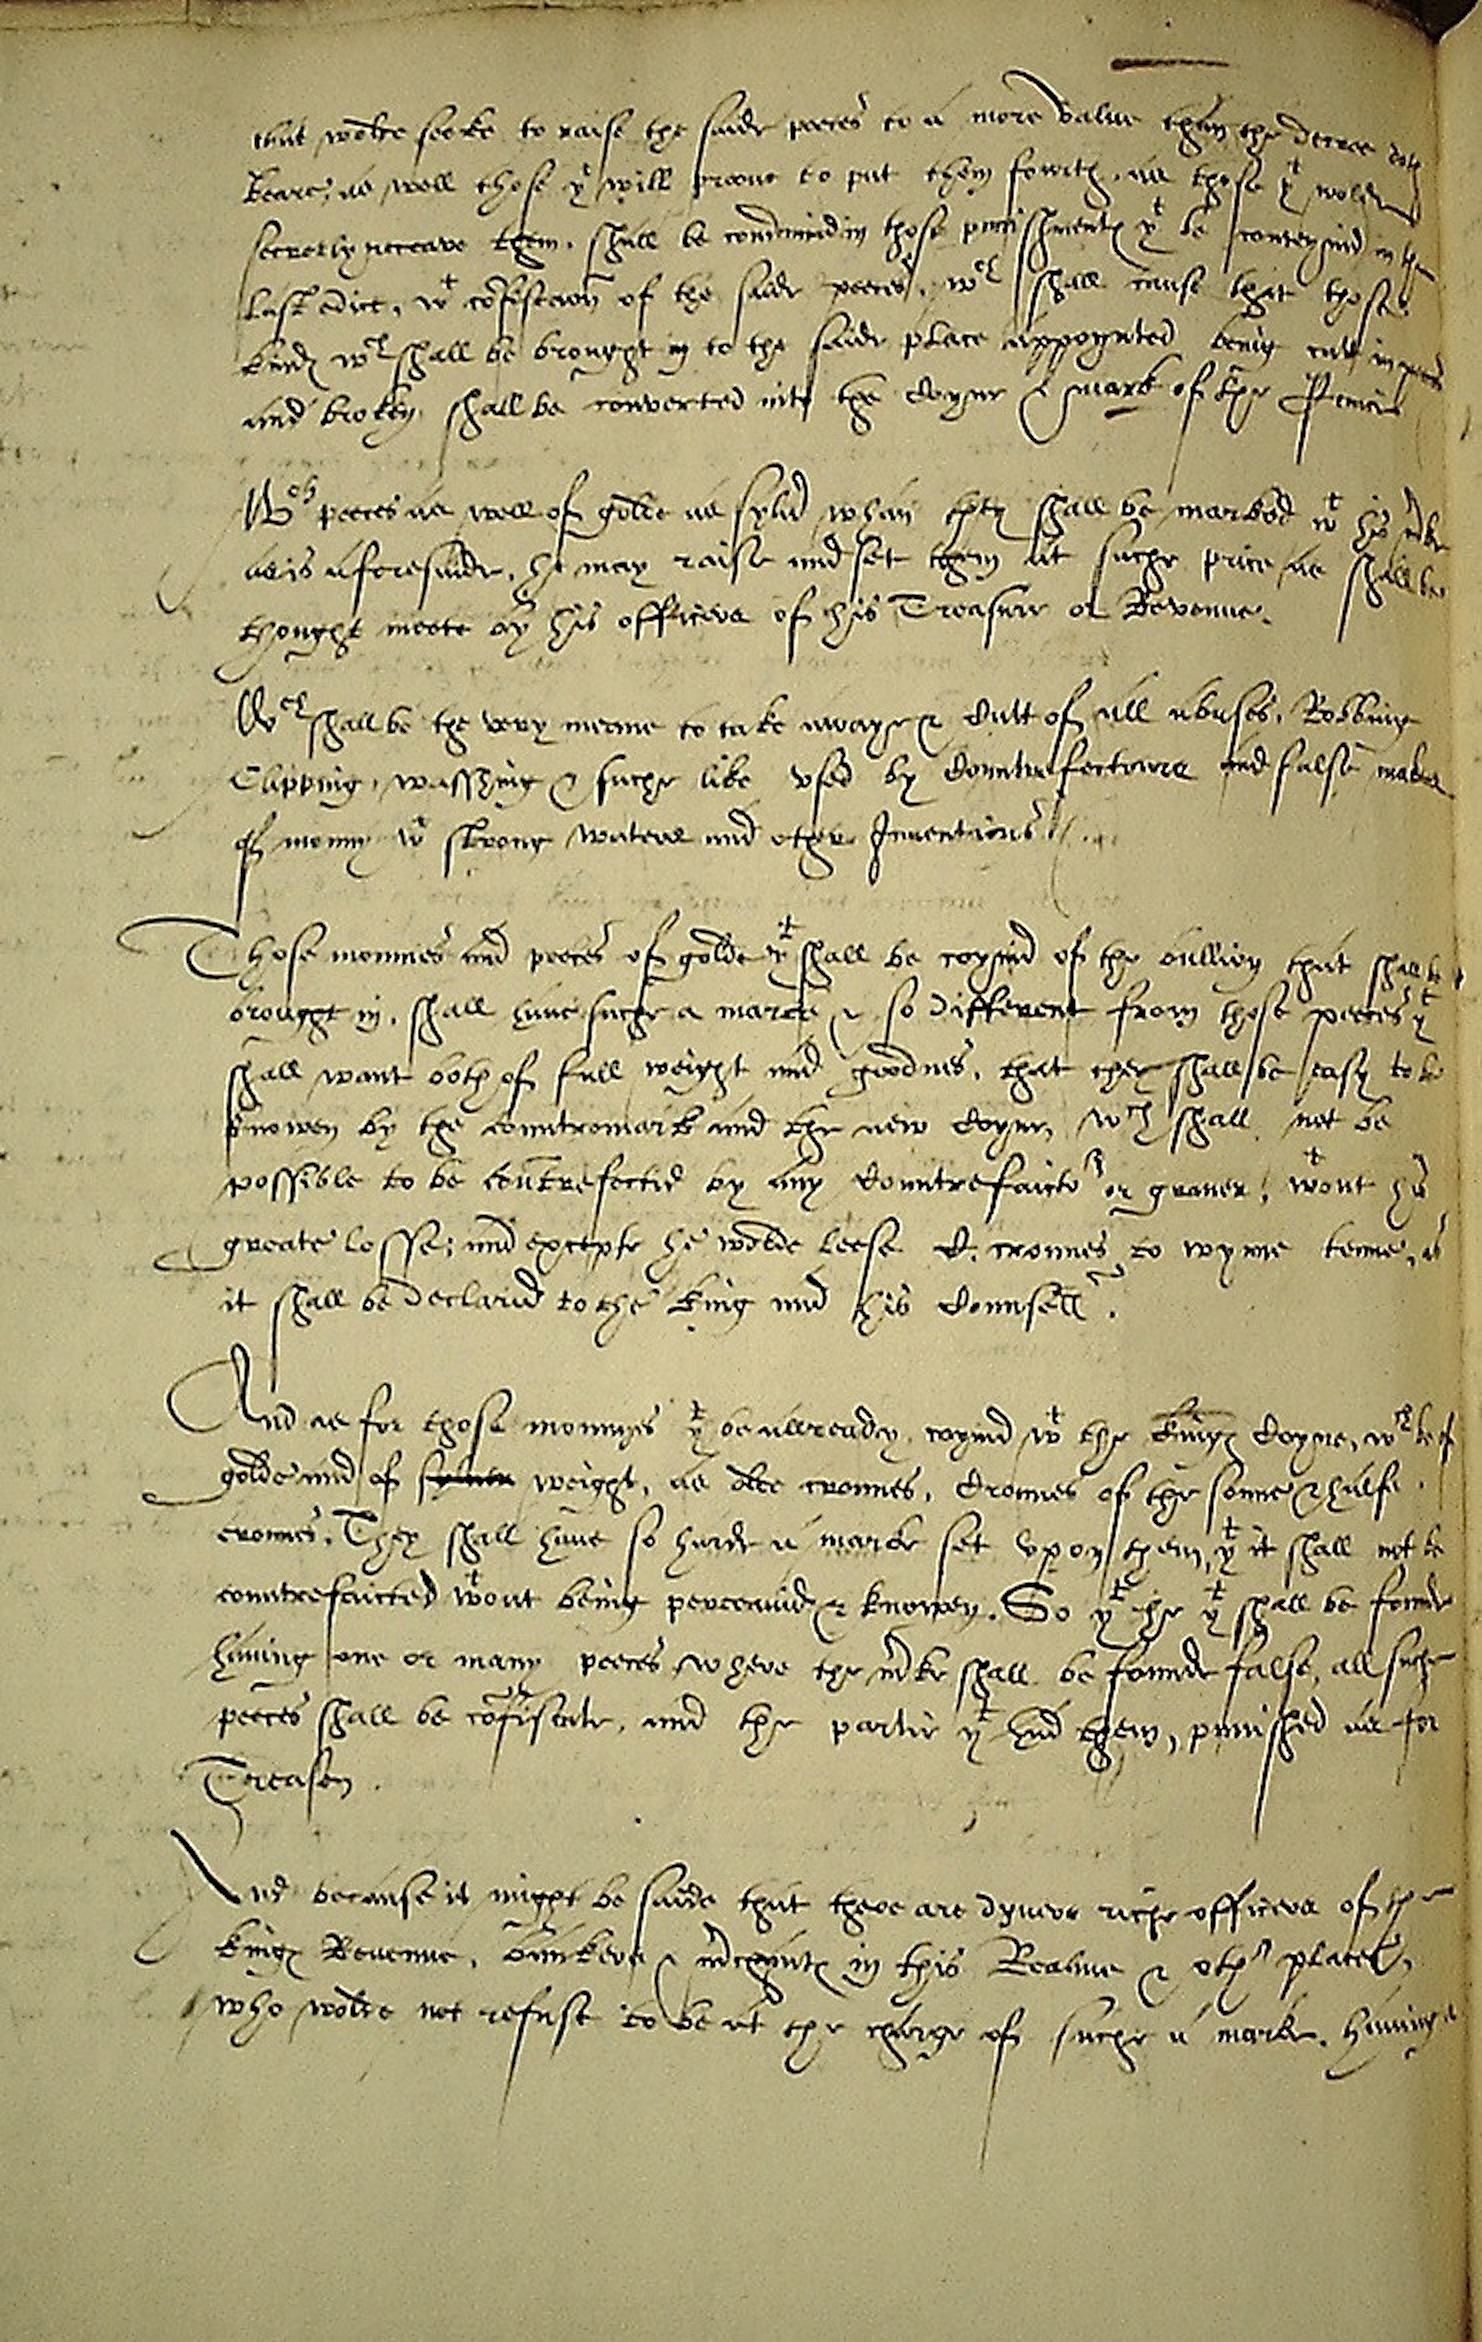 that wolde seeke to raise the saide peeces to a more value than the decree doth
beare, as well those yt will prooue to put them fourth, as those yt wolde
secretly receave them, shall be condemnid in those punishments yt be conteynid in the
last edict, wt cōfiscacion of the saide peeces, wch shall cause that those
kinds wch shall be brought in to the saide place appoynted being cutt in peeces
and broken shall be converted into the Coyne & mark of the Prince
Wch peeces as well of golde as sylver whan they shall be marked wt his mrke
as is aforesaide, he may raise and set them at suche price as shall be
thought meete by his officers of his Treasure or Revenue.
Wch shall be the very meane to take awaye & Cutt of all abuses, Robbing
Clipping, wasshing & suche like vsed by Countrefectours and false makers
of monny wt strong waters and other Inventions
Those monnies and peeces of golde yt shall be coynid of the bullion that shall be
brought in, shall haue suche a marke & so different from those peeces yt
shall want both of full weight and goodnes, that they shall be easy to be
knowen by the countremark and the new Coyne, wch shall not be
possible to be countrefectid by any Countrefaictor or graver, wtout his
greate losse; and excepte he wolde leese C. crounes to wynne tenne, as
it shall be declarid to the King and his Counsell.
And as for those monnyes yt be allreadey coynid wt the kings Coyne, wch be of
golde and of weight, as olde crounes, Crounes of the sonne & halfe
crounes. They shall haue so harde a marke set vpon them, yt it shall not be
countrefaicted wtout being perceauid & knowen. So yt he yt shall be founde
hauing one or many peeces where the mrke shall be founde false, all suche
peeces shall be cōfiscate, and the partie yt had them, punished as for
Treason.
And because it might be saide that there are dyuers riche officers of the
kings Revenue, bankers & mrchants in this Realme & other places,
who wolde not refuse to be at the charge of suche a marke, hauing a